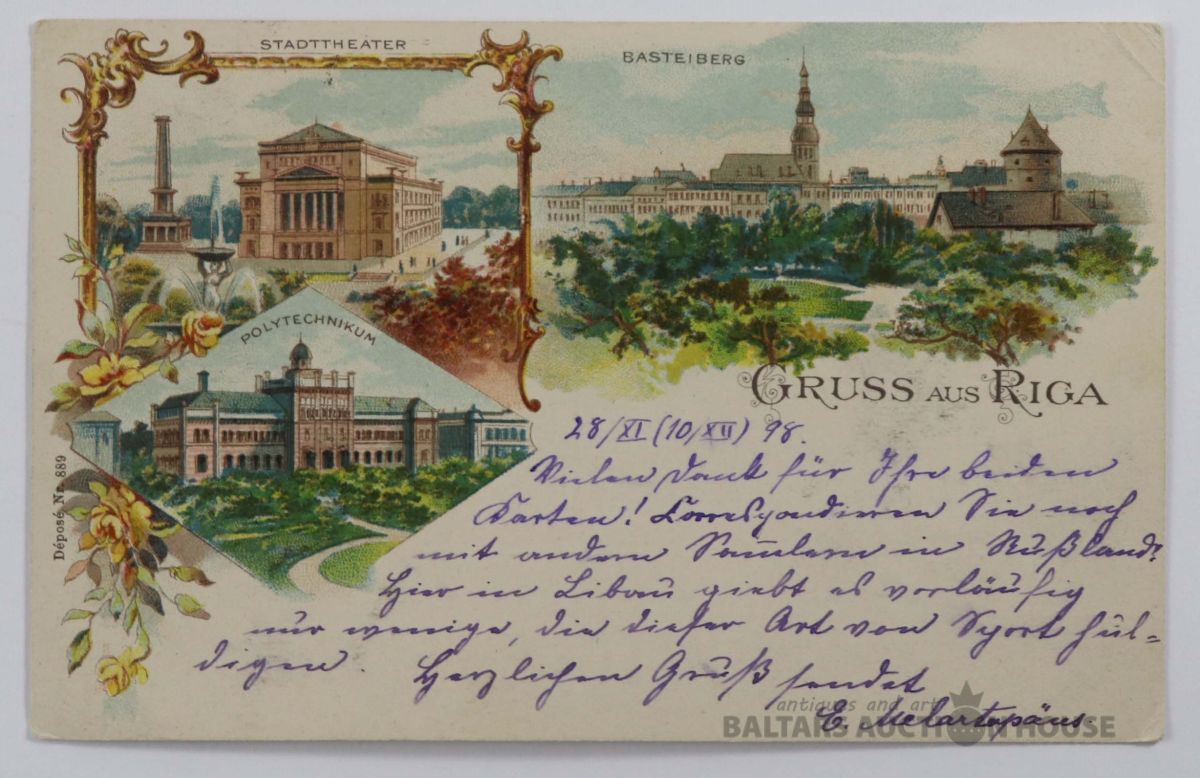 STADTTHEATER
BASTEIBERG
POLYTECHNIKUM
GRUSS AUS RIGA
Déposé. Nr. 889
28/XI (10/XII) 98.
Vielen Dank für Ihre beiden
Karten! Correspondieren Sie noch
mit andern Sammlern in Rußland?
Hier in Libau giebt es vorläufig
nur wenige, die dieser Art von Sport hul-
digen. Herzlichen Gruß sendet
E.
antiques and art
BALTARS AUCTION HOUSE